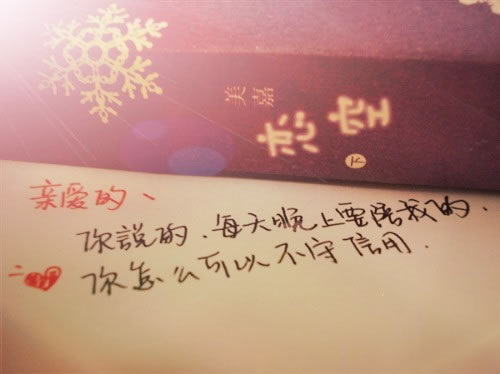 美嘉
恋空
下
亲爱的、
你説的、每天晚上要陪我的、
你怎么可以不守信用.